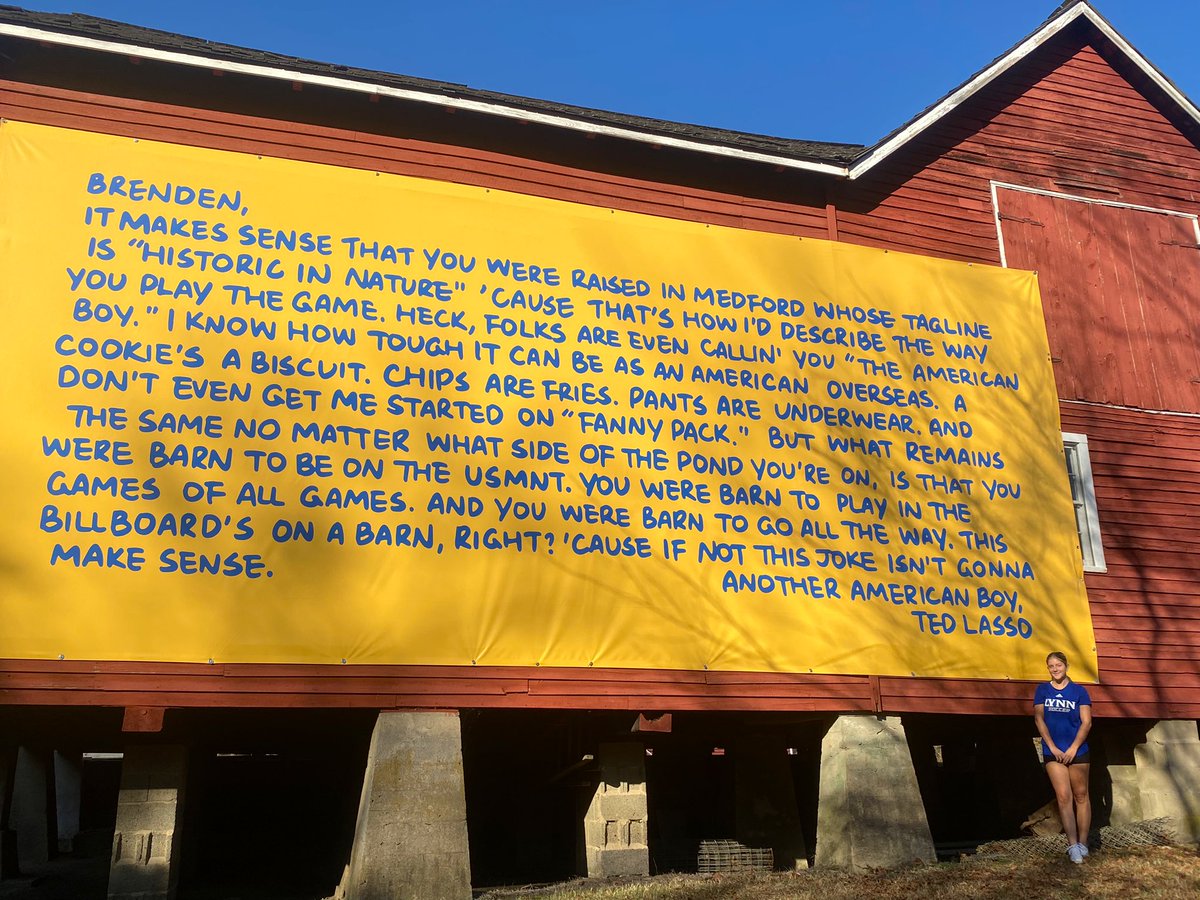 BRENDEN,
IT MAKES SENSE THAT YOU WERE RAISED IN MEDFORD WHOSE TAGLINE
IS "HISTORIC IN NATURE" 'CAUSE THAT'S HOW I'D DESCRIBE THE WAY
YOU PLAY THE GAME. HECK, FOLKS ARE EVEN CALLIN' YOU "THE AMERICAN
BOY." I KNOW HOW TOUGH IT CAN BE AS AN AMERICAN OVERSEAS. A
COOKIE'S A BISCUIT. CHIPS ARE FRIES. PANTS ARE UNDERWEAR. AND
DON'T EVEN GET ME STARTED ON "FANNY PACK." BUT WHAT REMAINS
THE SAME NO MATTER WHAT SIDE OF THE POND YOU'RE ON, IS THAT YOU
WERE BARN TO BE ON THE USMNT. YOU WERE BARN TO PLAY IN THE
GAMES OF ALL GAMES. AND YOU WERE BARN TO GO ALL THE WAY. THIS
BILLBOARD'S ON A BARN, RIGHT? 'CAUSE IF NOT THIS JOKE ISN'T GONNA
MAKE SENSE.
ANOTHER AMERICAN BOY,
TED LASSO
LYNN
SOCCER